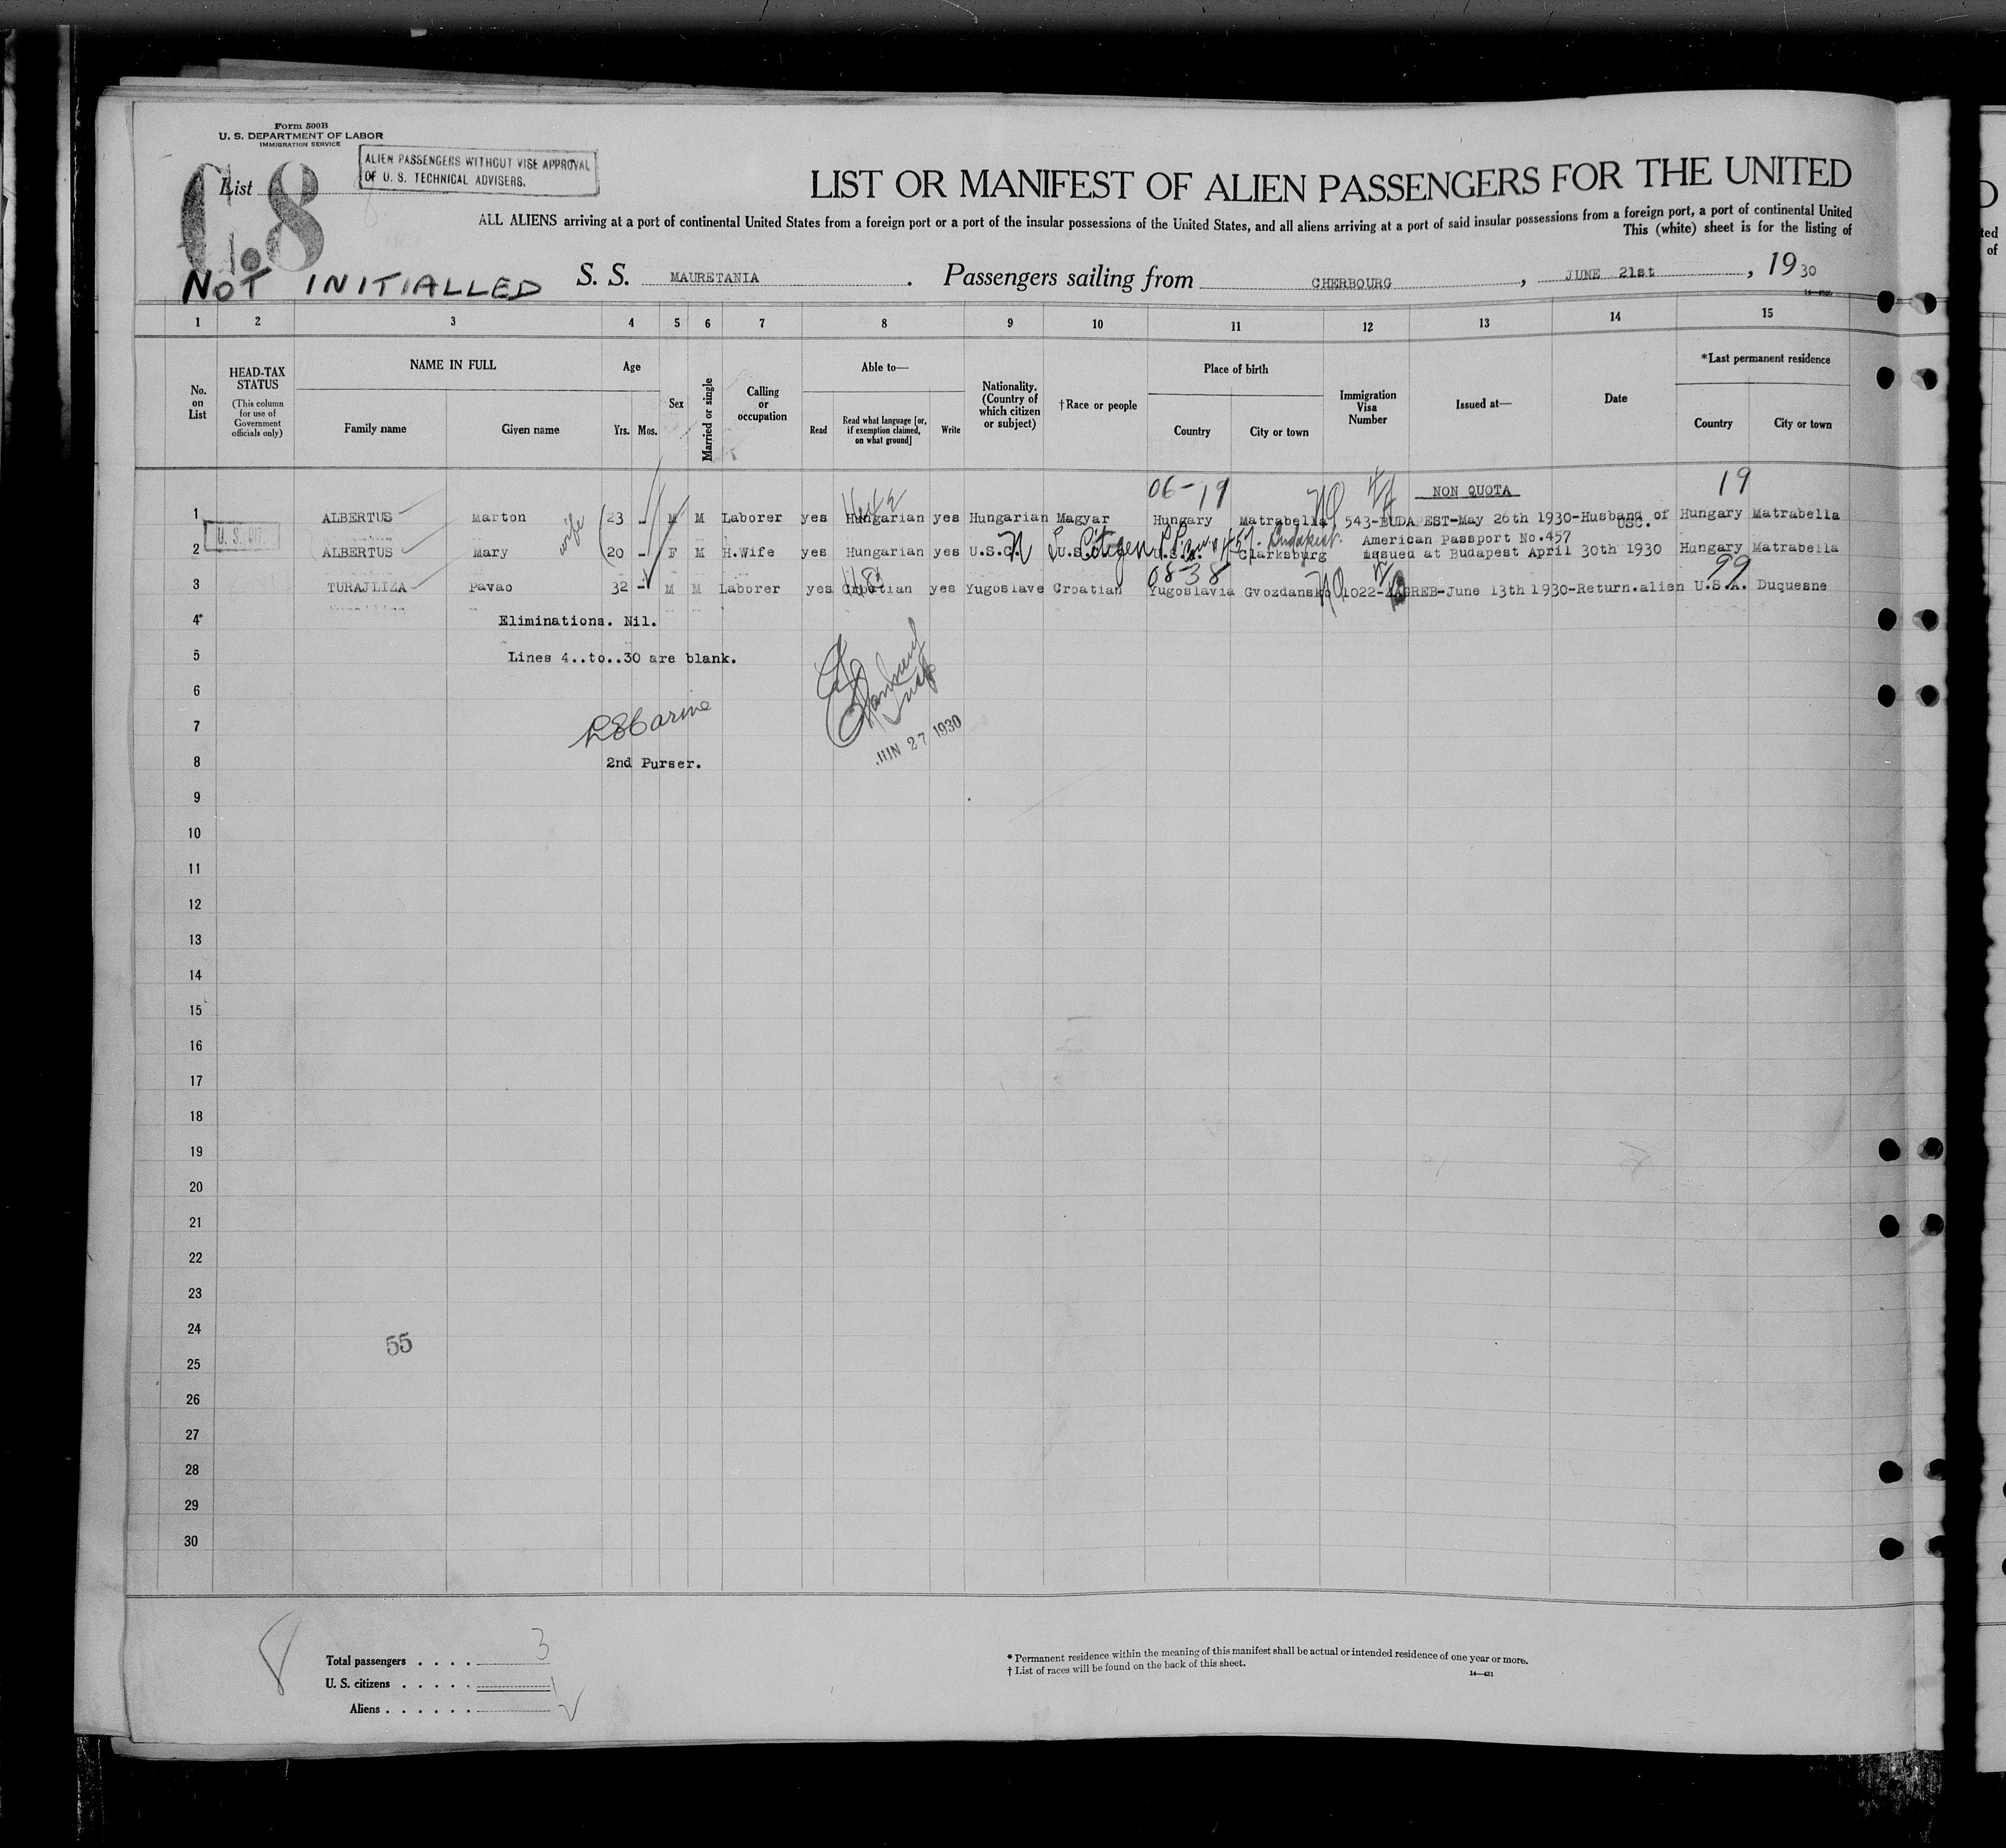 Form 500B
U. S. DEPARTMENT OF LABOR
IMMIGRATION SERVICE
List
ALIEN PASSENGERS WITHOUT VISE APPROVAL
OF U. S. TECHNICAL ADVISERS.
8
LIST OR MANIFEST OF ALIEN PASSENGERS FOR THE UNITED
ALL ALIENS arriving at a port of continental United States from a foreign port or a port of the insular possessions of the United States, and all aliens arriving at a port of said insular possessions from a foreign port, a port of continental United
This (white) sheet is for the listing of
NOT INITIALLED
S. S. MAURETANIA . Passengers sailing from CHERBOURG , JUNE 21st , 19 30
1 2 3 4 5 6 7 8 9 10 11 12 13 14 15
No. on List
HEAD-TAX STATUS
(This column for use of Government officials only)
NAME IN FULL
Family name Given name
Age
Yrs. Mos.
Sex
Married or single
Calling or occupation
Able to—
Read
Read what language [or, if exemption claimed, on what ground]
Write
Nationality. (Country of which citizen or subject)
†Race or people
Place of birth
Country City or town
Immigration Visa Number
Issued at—
Date
*Last permanent residence
Country City or town
06-19 NON QUOTA 19
1 ALBERTUS Marton 23 - M M Laborer yes Hungarian yes Hungarian Magyar Hungary Matrabella 543-BUDAPEST-May 26th 1930-Husband of USC. Hungary Matrabella
wife
U. S. CIT.
American Passport No.457
2 ALBERTUS Mary 20 - F M H.Wife yes Hungarian yes U.S.C. U.S. Citizen U.S.A. Clarksburg issued at Budapest April 30th 1930 Hungary Matrabella
457 Budapest
08-38 99
3 TURAJLIZA Pavao 32 - M M Laborer yes Croatian yes Yugoslave Croatian Yugoslavia Gvozdansko 1022-ZAGREB-June 13th 1930-Return.alien U.S.A. Duquesne
4 Eliminations. Nil.
5 Lines 4..to..30 are blank.
6
7
8 2nd Purser.
JUN 27 1930
9
10
11
12
13
14
15
16
17
18
19
20
21
22
23
24
55
25
26
27
28
29
30
8
Total passengers . . . . 3
U. S. citizens . . . . . 1
Aliens . . . . . . 2
* Permanent residence within the meaning of this manifest shall be actual or intended residence of one year or more.
† List of races will be found on the back of this sheet.
14—431